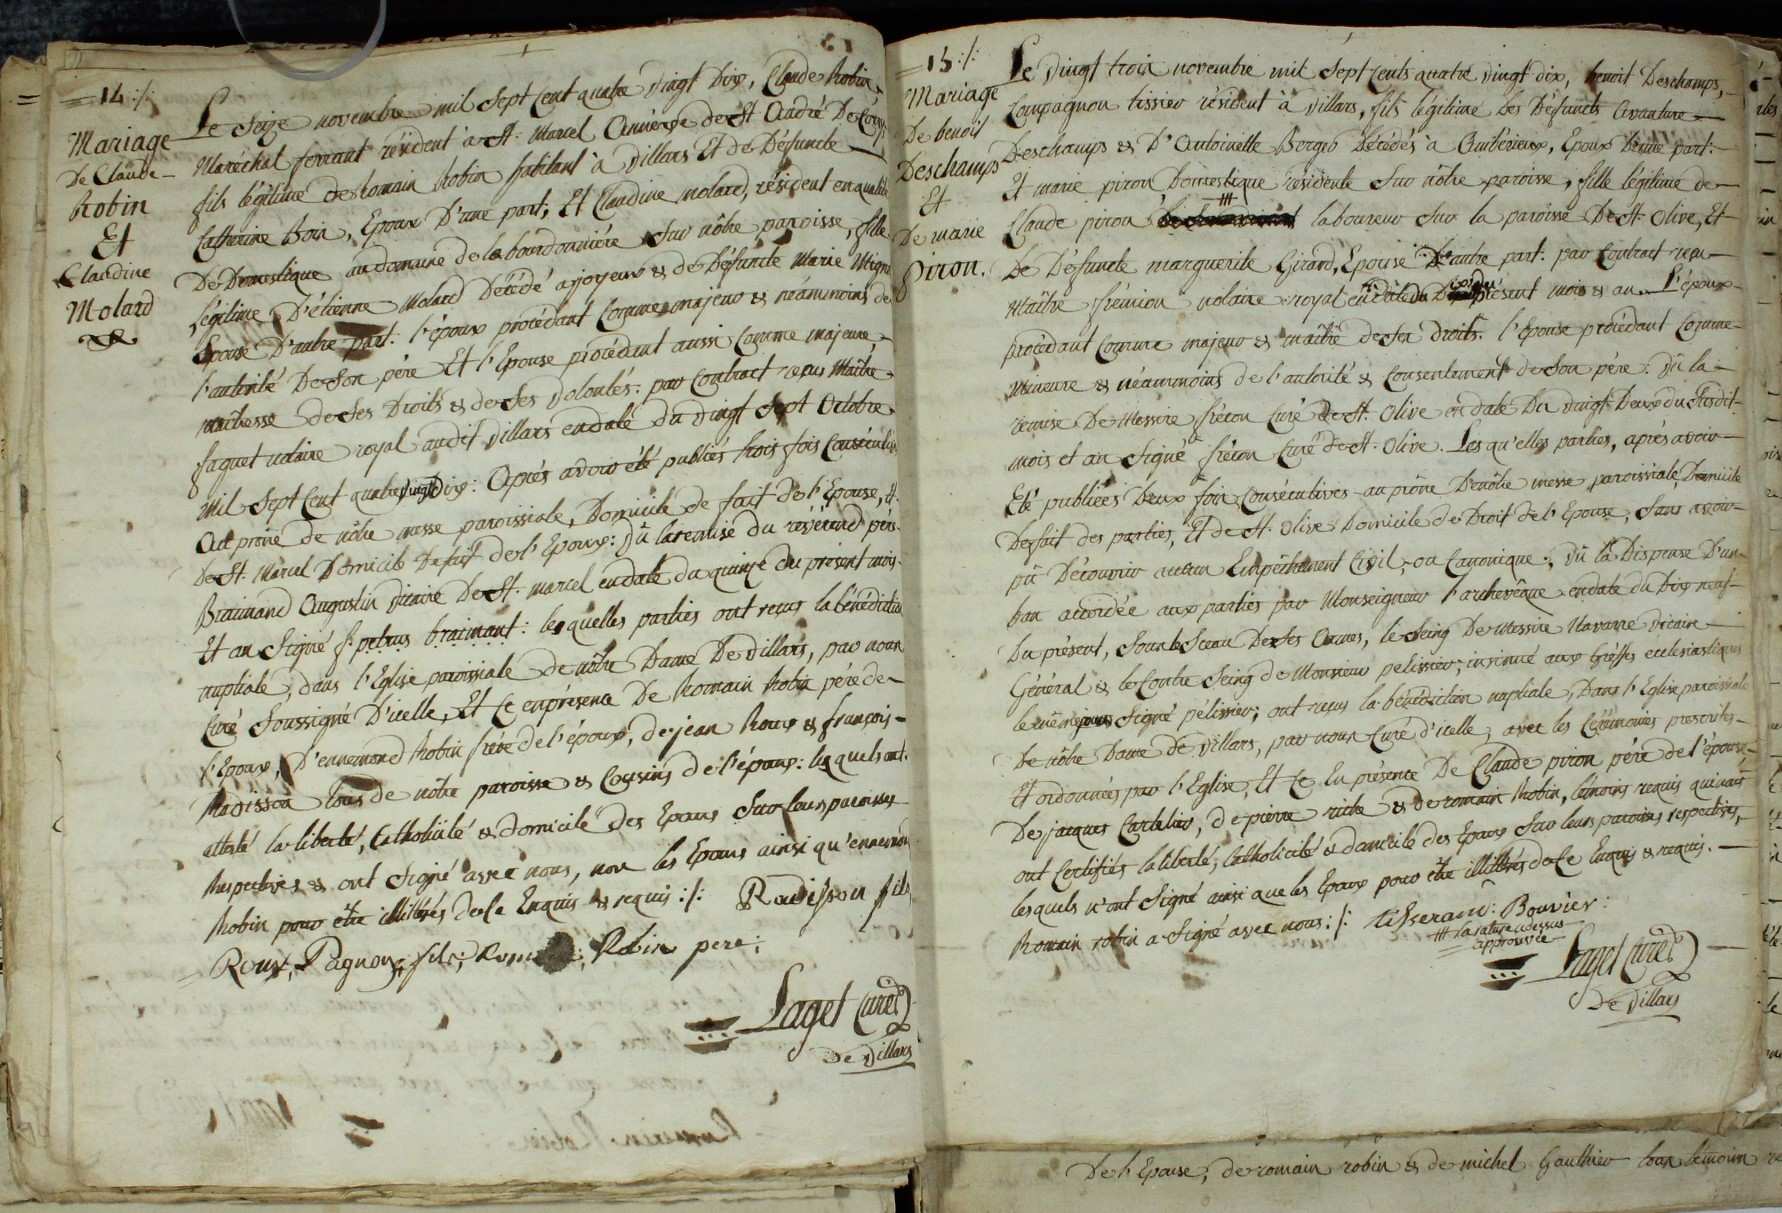 14:/:
Mariage
De Claude
Robin
Et
Claudine
Molard
Le Seize novembre mil Sept Cent quatre vingt Dix, Claude Robin
Maréchal ferrant résident à St. Marcel Annéxe de St André De Corcy
fils légitime de Romain Robin habitant à Villars Et de Défuncte
Catherine Boin, Epoux D'une part; Et Claudine Molard, résident en qualité
De Domestique au domaine de la bourdonniére Sur nôtre paroisse, fille
légitime D'étienne Molard Décédé a joyeux & de Défuncte Marie
Epouse D'autre part. l'époux procédant Comme majeur & néammoins de
l'autorité De Son pére Et l'Epouse procédant aussi Comme majeure,
maîtresse de Ses Droits & de Ses volontés: par Contract reçus Maître
faguet notaire royal audit Villars en date du vingt Sept Octobre
Mil Sept Cent quatre vingt Dix: Aprés avoir été publiés trois fois Consécutives
Au prône de nôtre messe paroissiale, Domicile de fait de l'Epouse, Et
De St. Marcel Domicile De fait de l'Epoux: Vû la remise du révérend pére
Braimand Augustin vicaire De St. marcel en date du quinze du présent mois
Et an Signé fr. petrus braimant: lesquelles parties ont reçus la bénédiction
nuptiale, dans l'Eglise paroissiale de nôtre Dame De Villars, par nous
Curé Soussigné D'icelle, Et Ce en présence De Romain Robin pére de
l'Epoux, D'ennemond Robin frére de l'époux, de jean Roux & françois
Radisson tous de nôtre paroisse & Cousins de l'époux: lesquels ont
attesté la liberté, Catholicité & domicile des Epoux Sur leurs paroisses
Respectives & ont Signé avec nous, non les Epoux ainsi qu'ennemond
Robin pour être illitérés de Ce Enquis & requis :/: Radisson fils
Roux, Pagnon, fils; Romain Robin pere;
Laget Curé
De Villars
15:/:
Mariage
De benoit
Deschamps
Et
De marie
Piron.
Le vingt trois novembre mil Sept Cents quatre vingt dix, benoit Deschamps,
Compagnon tissier résident à Villars, fils légitime des Défuncts
Deschamps & D'Antoinette Berger Décédés à Ambérieux, Epoux D'une part:
Et marie piron Domestique résidente Sur nôtre paroisse, fille légitime de
Claude piron laboureur Sur la paroisse De St. Olive, Et
De Défuncte marguerite Girard, Epouse D'autre part: par Contract reçu
Maître frémion notaire royal en date du présent mois & an. L'époux
procédant Comme majeur & maître de Ses droits. l'Epouse procédant Comme
Mineure & néammoins de l'autorité & Consentement de Son pére: Vû la
remise De Messire fréron Curé De St. Olive en date Du vingt Deux du Susdit
mois et an Signé fréron Curé de St. Olive. Lesqu'elles parties, aprés avoir
Eté publiées Deux fois Consécutives au prône De nôtre messe paroissiale, Domicile
De fait des parties, Et de St. Olive Domicile de Droit de l'Epouse, Sans avoir
pû Découvrir aucun Empêchement Civil, ou Canonique: Vû la Dispense D'un
ban accordée aux parties par Monseigneur l'archevêque en date du Dix neuf
Du présent, Sous le Sceau De Ses Armes, le Seing De Messire Navarre vicaire
Général & le Contre Seing de Monsieur pelissier; insinué aux Gréffes ecclésiastiques
le même jour Signé pélissier; ont reçus la bénédiction nuptiale, Dans l'Eglise paroissiale
De nôtre Dame de Villars, par nous Curé d'icelle, avec les Cérémonies prescrites
Et ordonnées par l'Eglise, Et Ce En présence De Claude piron pére de l'épouse
De jacques Cartelier, de pierre & de romain Robin, témoins requis qui nous
ont Certifiés la liberté, Catholicité & domicile des Epoux Sur leurs paroisses respectives,
lesquels n'ont Signé ainsi que les Epoux pour être illitérés de Ce Enquis & requis.
Romain robin a Signé avec nous :/: tisserand: Bouvier:
la rature cidessus
approuvée
Laget Curé
De Villars
De l'Epouse, de romain robin & de michel Gauthier tous témoins